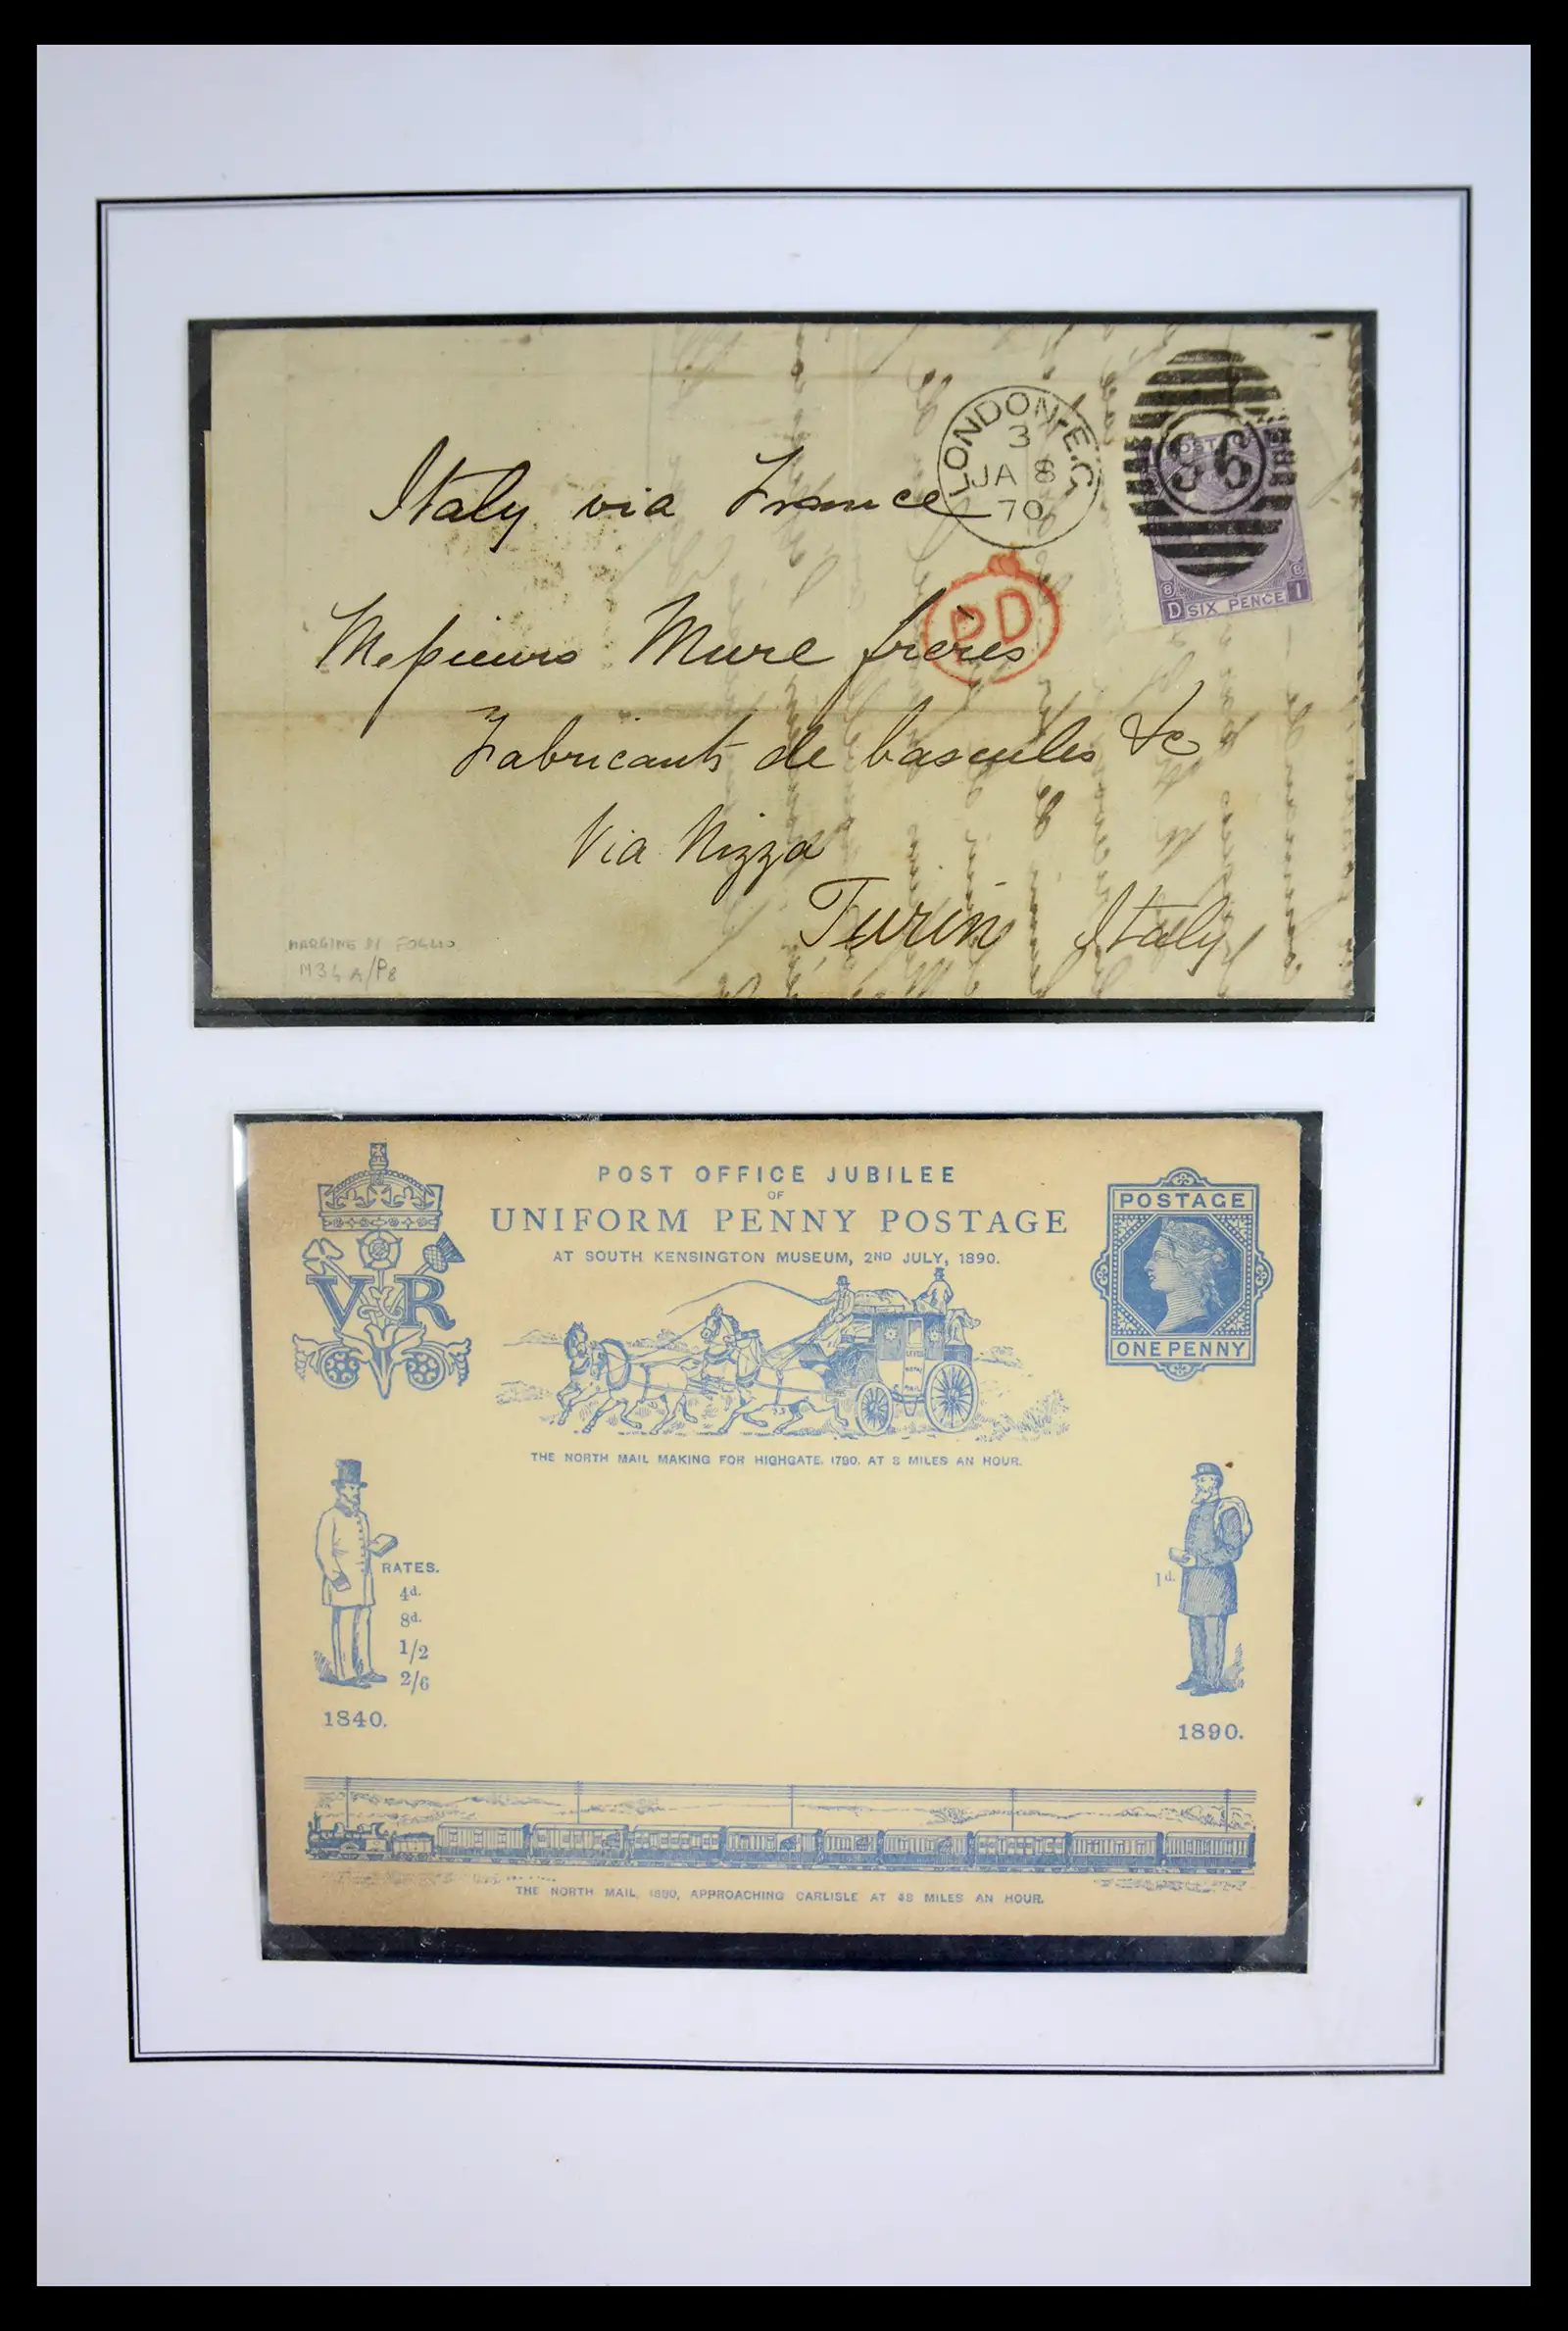 LONDON.E.C
3
JA 8
70
86
POSTAGE
8 8
D SIX PENCE I
Italy via France
PD
Messieurs Mure frères
Fabricants de bascules &c
Via Nizza
Turin Italy
MARGINE DI FOGLIO
POST OFFICE JUBILEE
OF
UNIFORM PENNY POSTAGE
AT SOUTH KENSINGTON MUSEUM, 2ND JULY, 1890.
V R
POSTAGE
ONE PENNY
THE NORTH MAIL MAKING FOR HIGHGATE, 1790, AT 8 MILES AN HOUR.
RATES.
4d.
8d.
1/2
2/6
1840.
1d.
1890.
THE NORTH MAIL, 1890, APPROACHING CARLISLE AT 48 MILES AN HOUR.